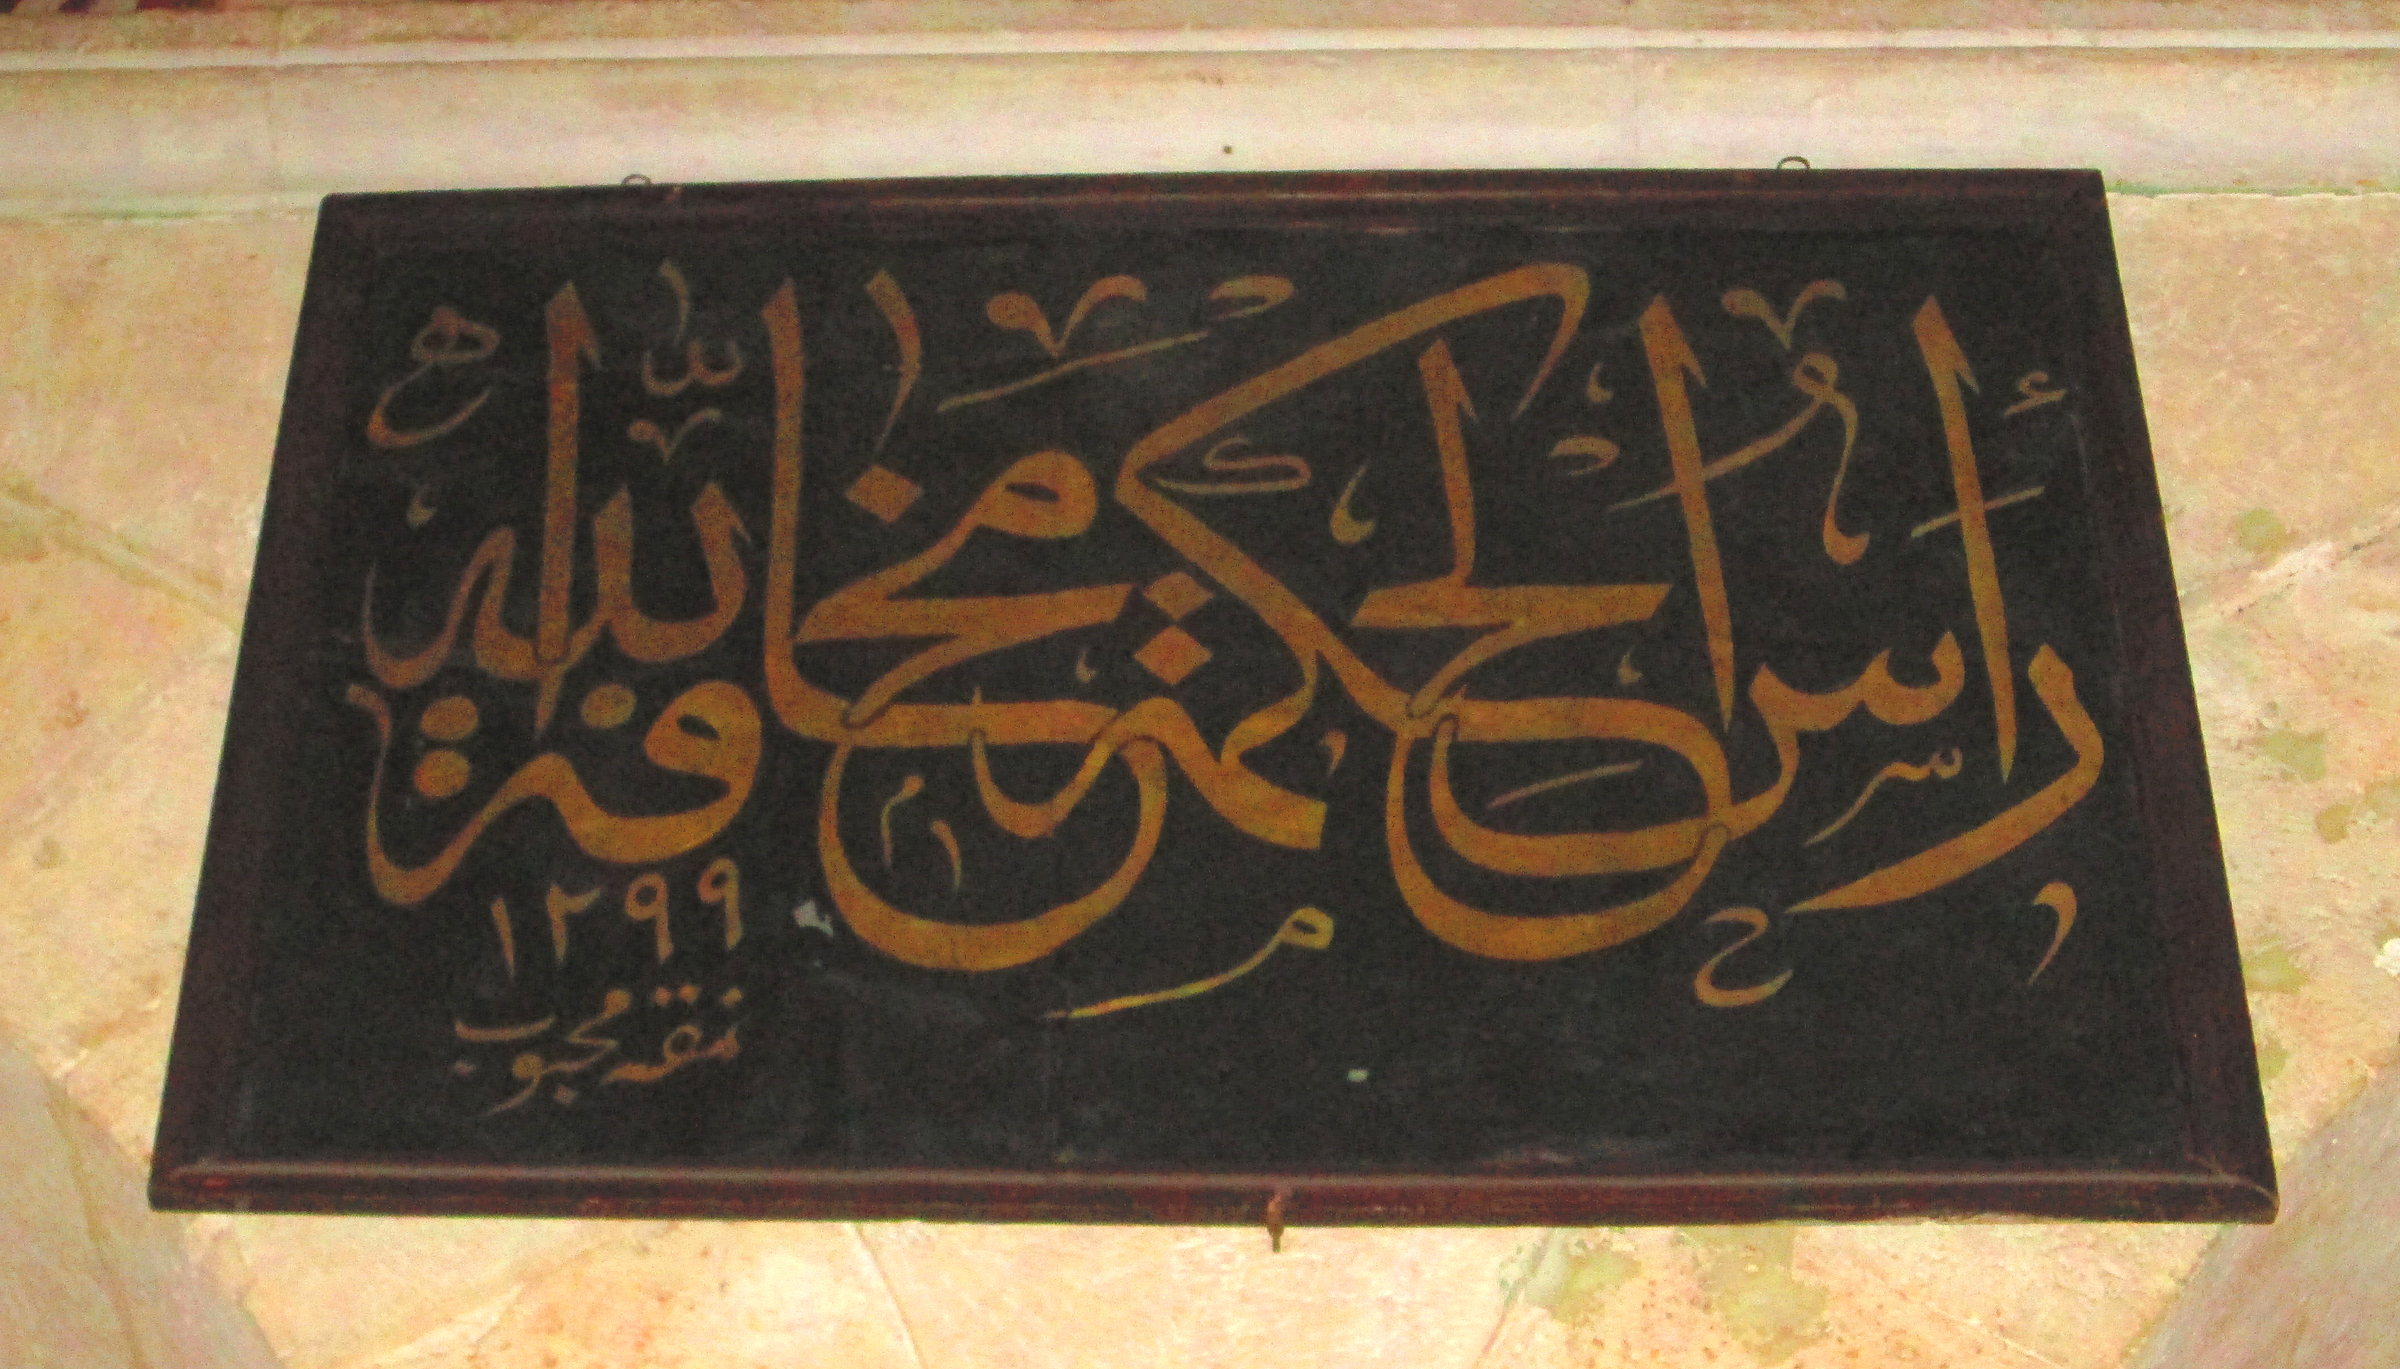 رأس الحكمة مخافة الله
١٢٩٩
نمقه محبوب